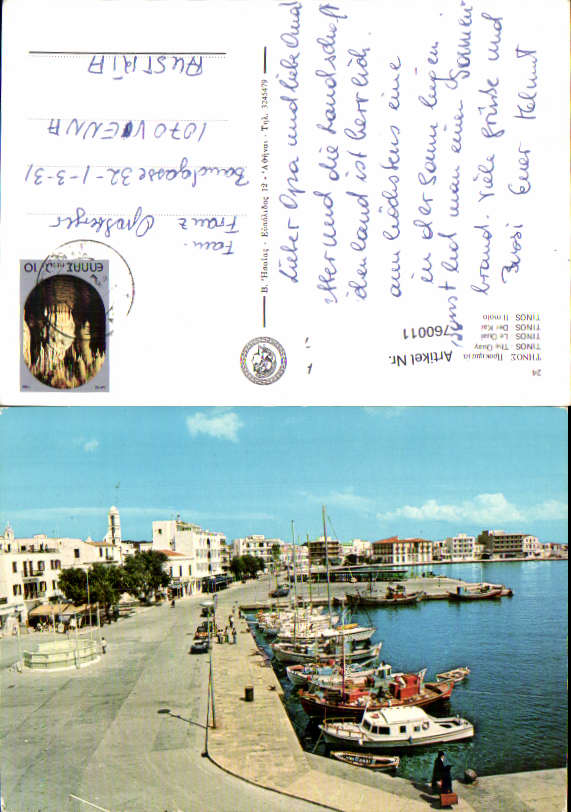 Lieber Opa und liebe And
Meer und die Landschaft
den Land ist herrlich.
am höchstens eine
in der Sonne liegen
sonst hat man einen Sonnen
brand. Viele Grüße und
Bussi Euer Helmut
Fam.
Franz
Bandgasse 32-1-3-31
1070 VIENNA
AUSTRIA
ΕΛΛΑΣ 10
Β. Ἡσαΐας - Εὐπόλιδος 12 - Ἀθῆναι - Τηλ. 3245479
24
ΤΗΝΟΣ Προκυμαία
TINOS The Quay
TINOS Le Quai
TINOS Der Kai
TINOS Il molo
Artikel Nr.
760011